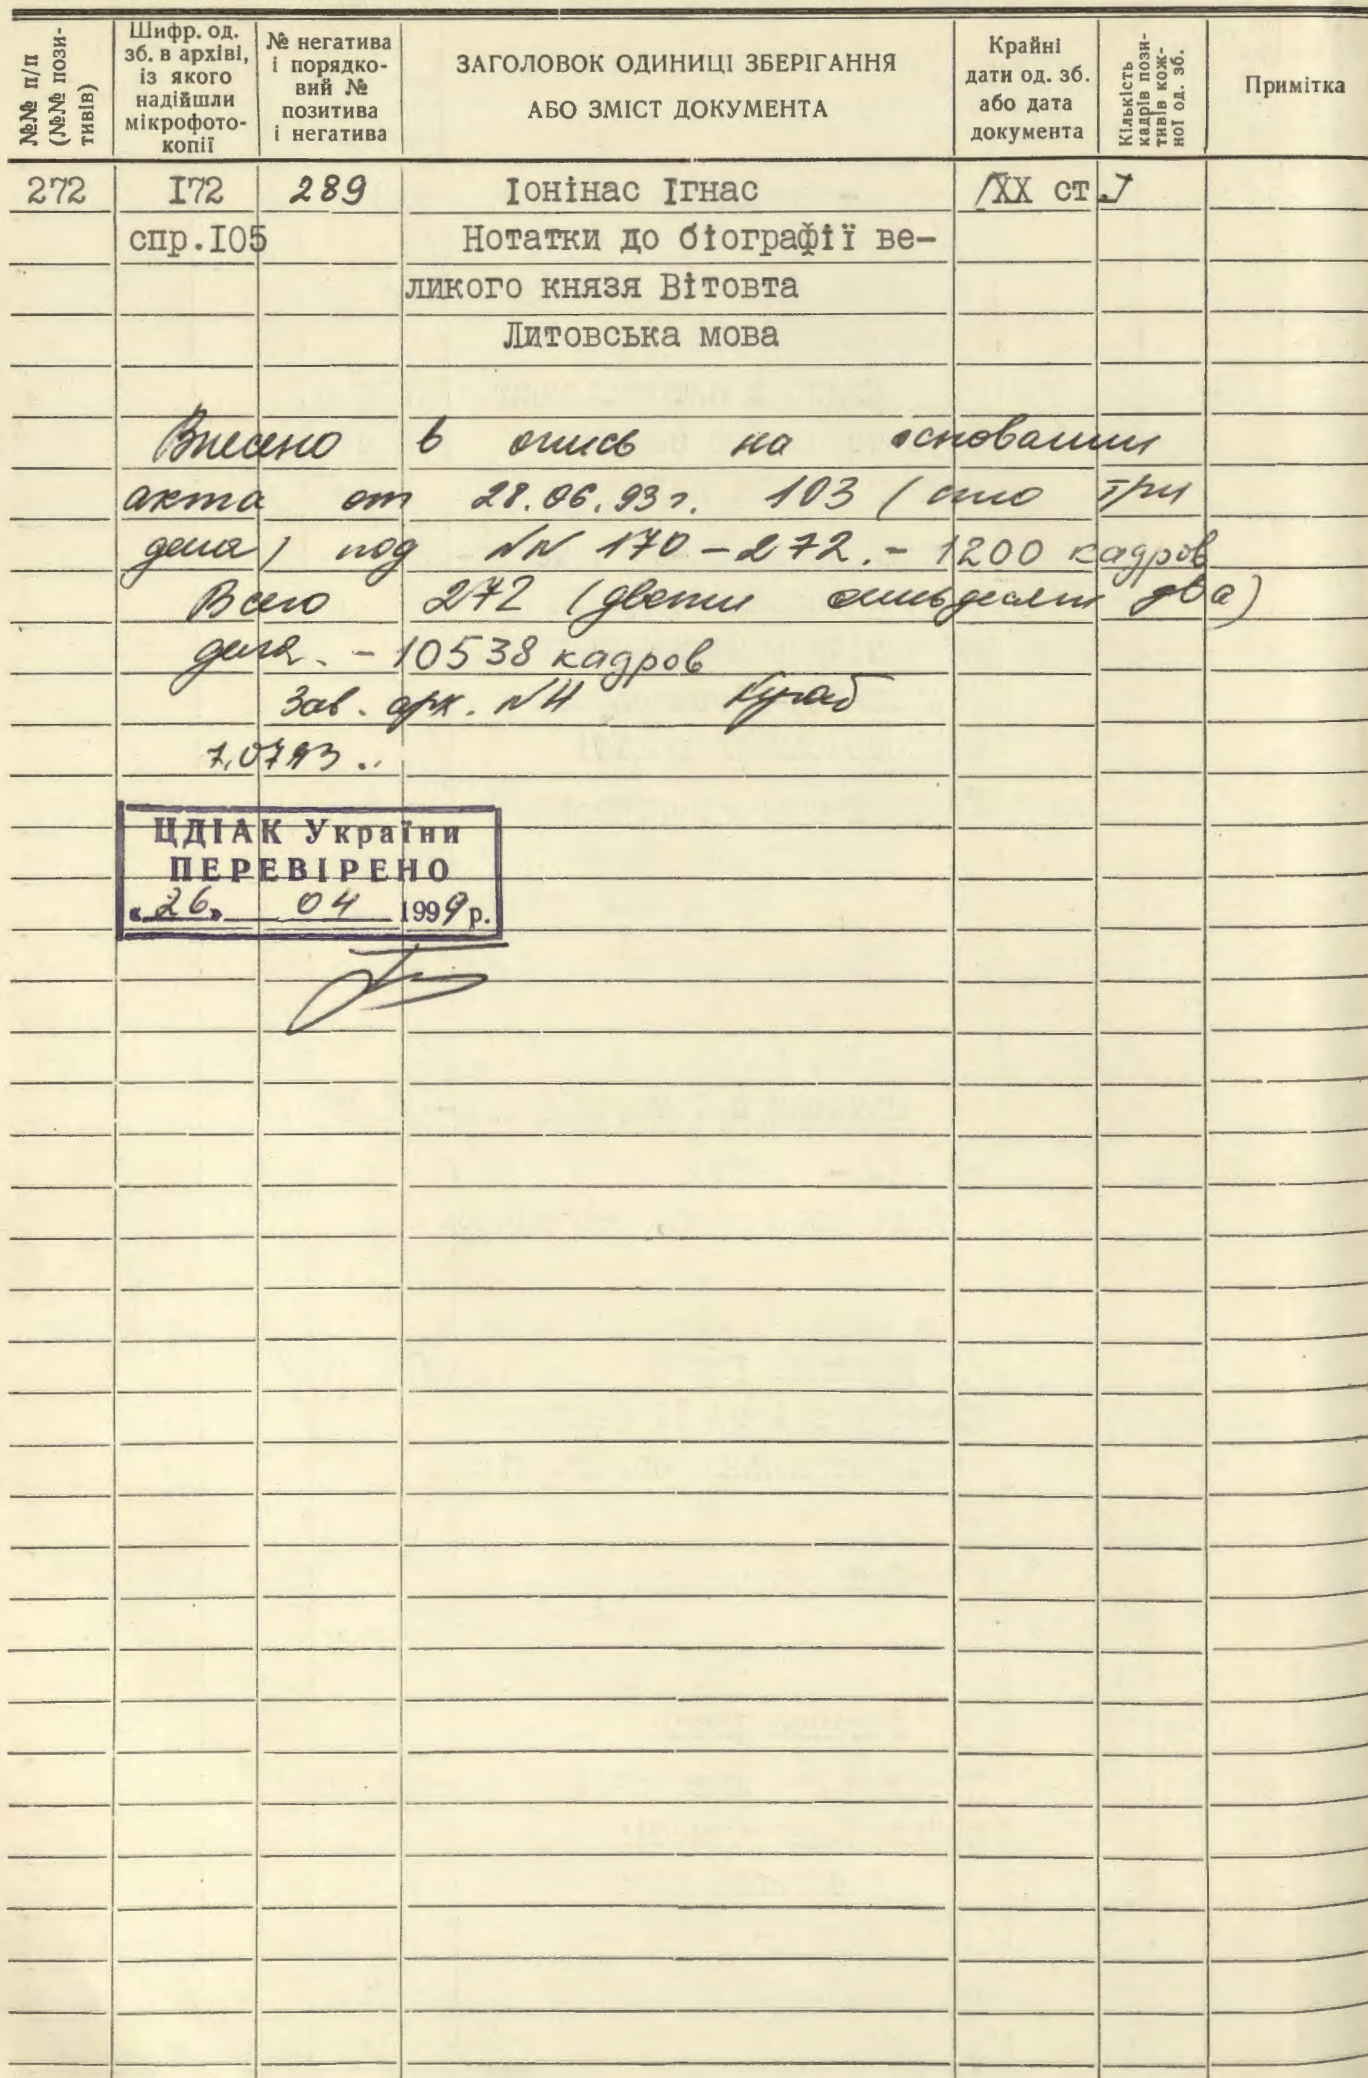 №№ п/п
(№№ пози-
тивів)
Шифр. од.
зб. в архіві,
із якого
надійшли
мікрофото-
копії
№ негатива
і порядко-
вий №
позитива
і негатива
ЗАГОЛОВОК ОДИНИЦІ ЗБЕРІГАННЯ
АБО ЗМІСТ ДОКУМЕНТА
Крайні
дати од. зб.
або дата
документа
Кількість
кадрів пози-
тивів кож-
ної од. зб.
Примітка
272 I72 289 Іонінас Ігнас /XX ст
спр.I05 Нотатки до біографії ве-
ликого князя Вітовта
Литовська мова
Внесено в опись на основании
акта от 28.06.93 г. 103 (сто три
дела) под №№ 170-272. - 1200 кадров
Всего 272 (двести семьдесят два)
дела. - 10538 кадров
Зав. арх.
7.07.93
ЦДІАК України
ПЕРЕВІРЕНО
«26» 04 1999 р.